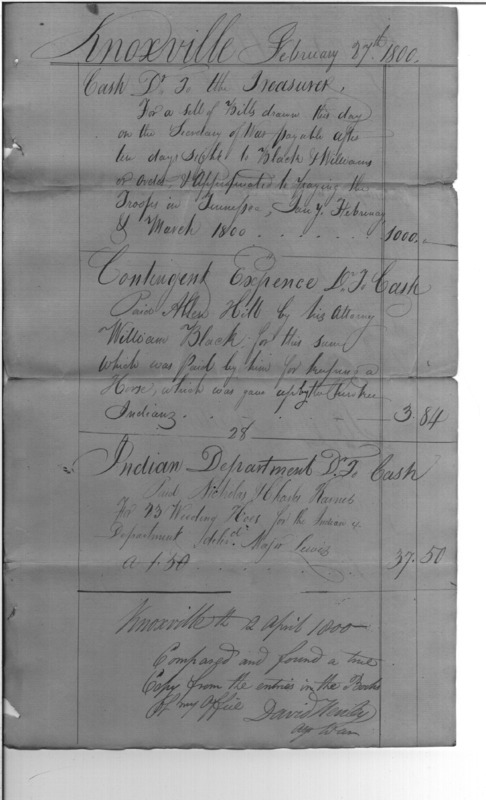 Knoxville February 27th 1800.
Cash Dr. To the Treasurer.
For a sett of Bills drawn this day
on the Secretary of War payable after
ten days sight to Black & Williams
or order, & Appropriated to paying the
Troops in Tennessee, Jany. February
& March 1800 . . . . . . 1000.
Contingent Expence Dr. To Cash
Paid Allen Hill by his Attorney
William Black for this sum
which was paid by him for keeping a
Horse, which was gave up by the
Indians . . . . . 3.84
28
Indian Department Dr. To Cash
Paid Nicholas & Charles
For 23 Weeding Hoes for the Indian
Department Major Lewis
. . . . . 37.50
Knoxville 2 April 1800
Compared and found a true
Copy from the entries in the Books
of my Office David Henley